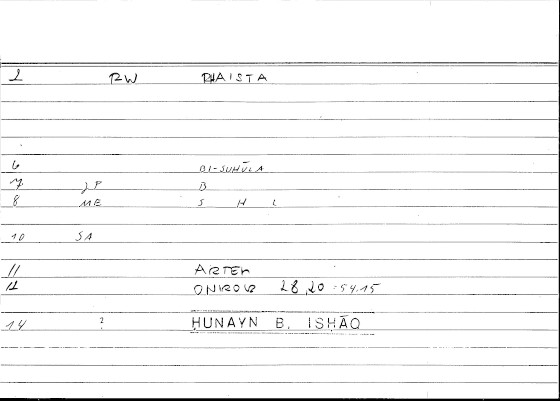 2 RW RHAISTA
6 BI-SUHŪLA
7 JP B
8 ME S H L
10 SA
11 ARTEM
12 28,20 = 54.15
14 ? HUNAYN B. ISHĀQ